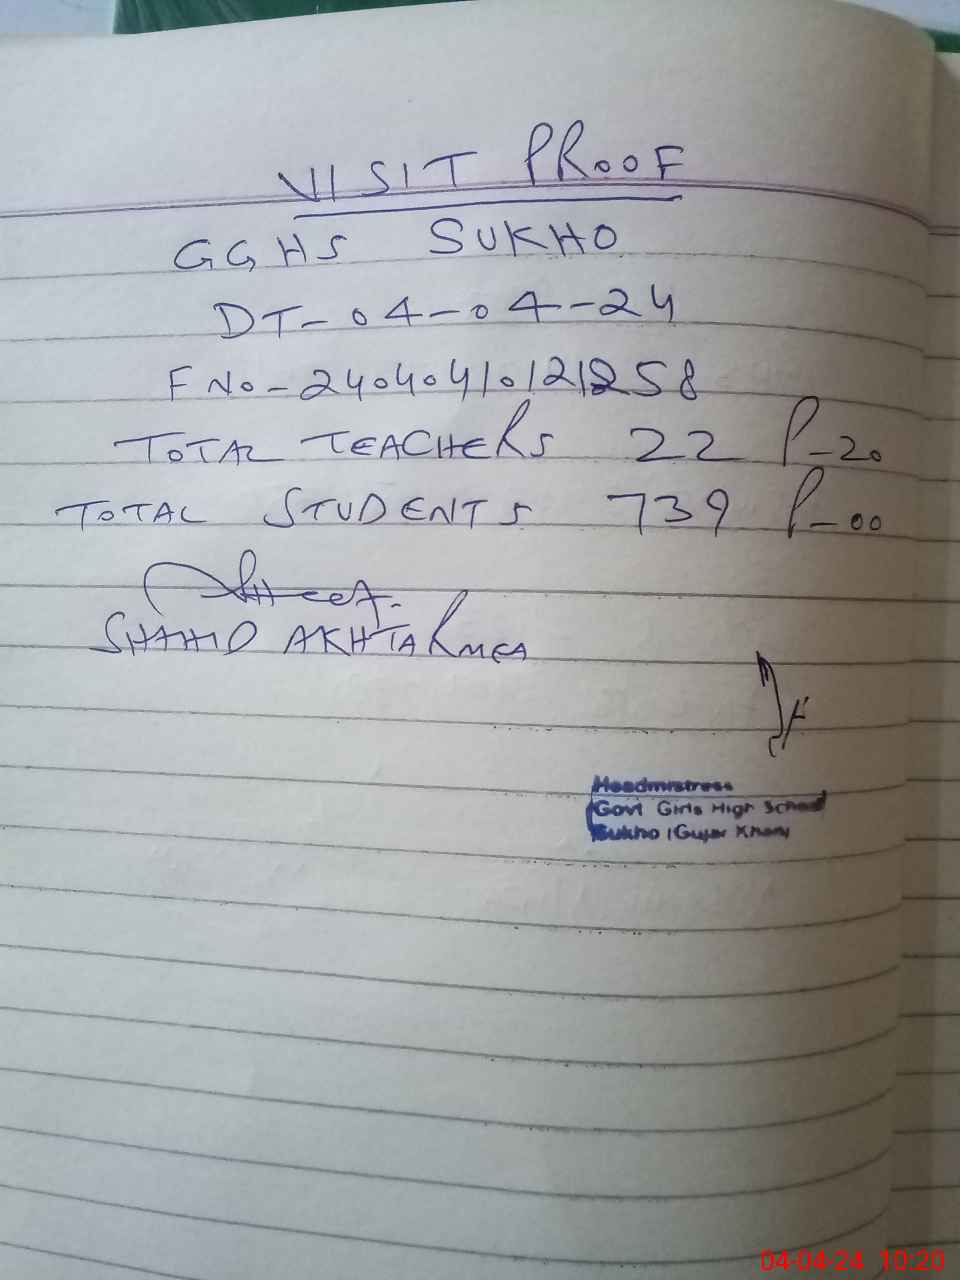 VISIT PROOF
GGHS SUKHO
DT-04-04-24
F No-24040410121258
TOTAL TEACHERS 22 P-20
TOTAL STUDENTS 739 P-00
SHAHID AKHTAR MEA
Headmistress
Govt Girls High School
Sukho (Gujar Khan)
04-04-24 10:20